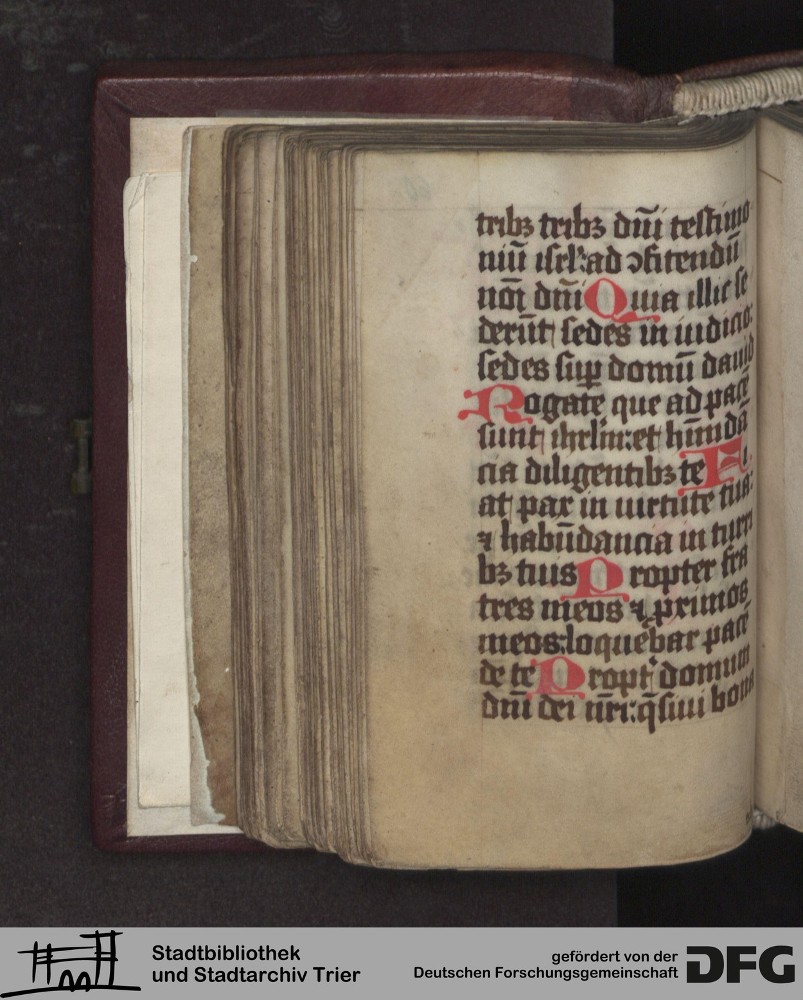 tribꝫ tribꝫ dn̄i testimo
niū isrl': ad ꝯfitendū
noı̄ dn̄i Quia illic se
derūt sedes in iudicio:
sedes sup̱ domū dauid
Rogate que ad pacē
sunt ihrlm: et hūndā
cia diligentibꝫ te Fi
at pax in uirtute tua:
⁊ habūdancia in turri
bꝫ tuis Propter fra
tres meos ⁊ p̱rimos
meos: loquebar pacē
de te Propt̓ domum
dn̄i dei nr̄i: q̄siui bona
Stadtbibliothek
und Stadtarchiv Trier
gefördert von der
Deutschen Forschungsgemeinschaft
DFG